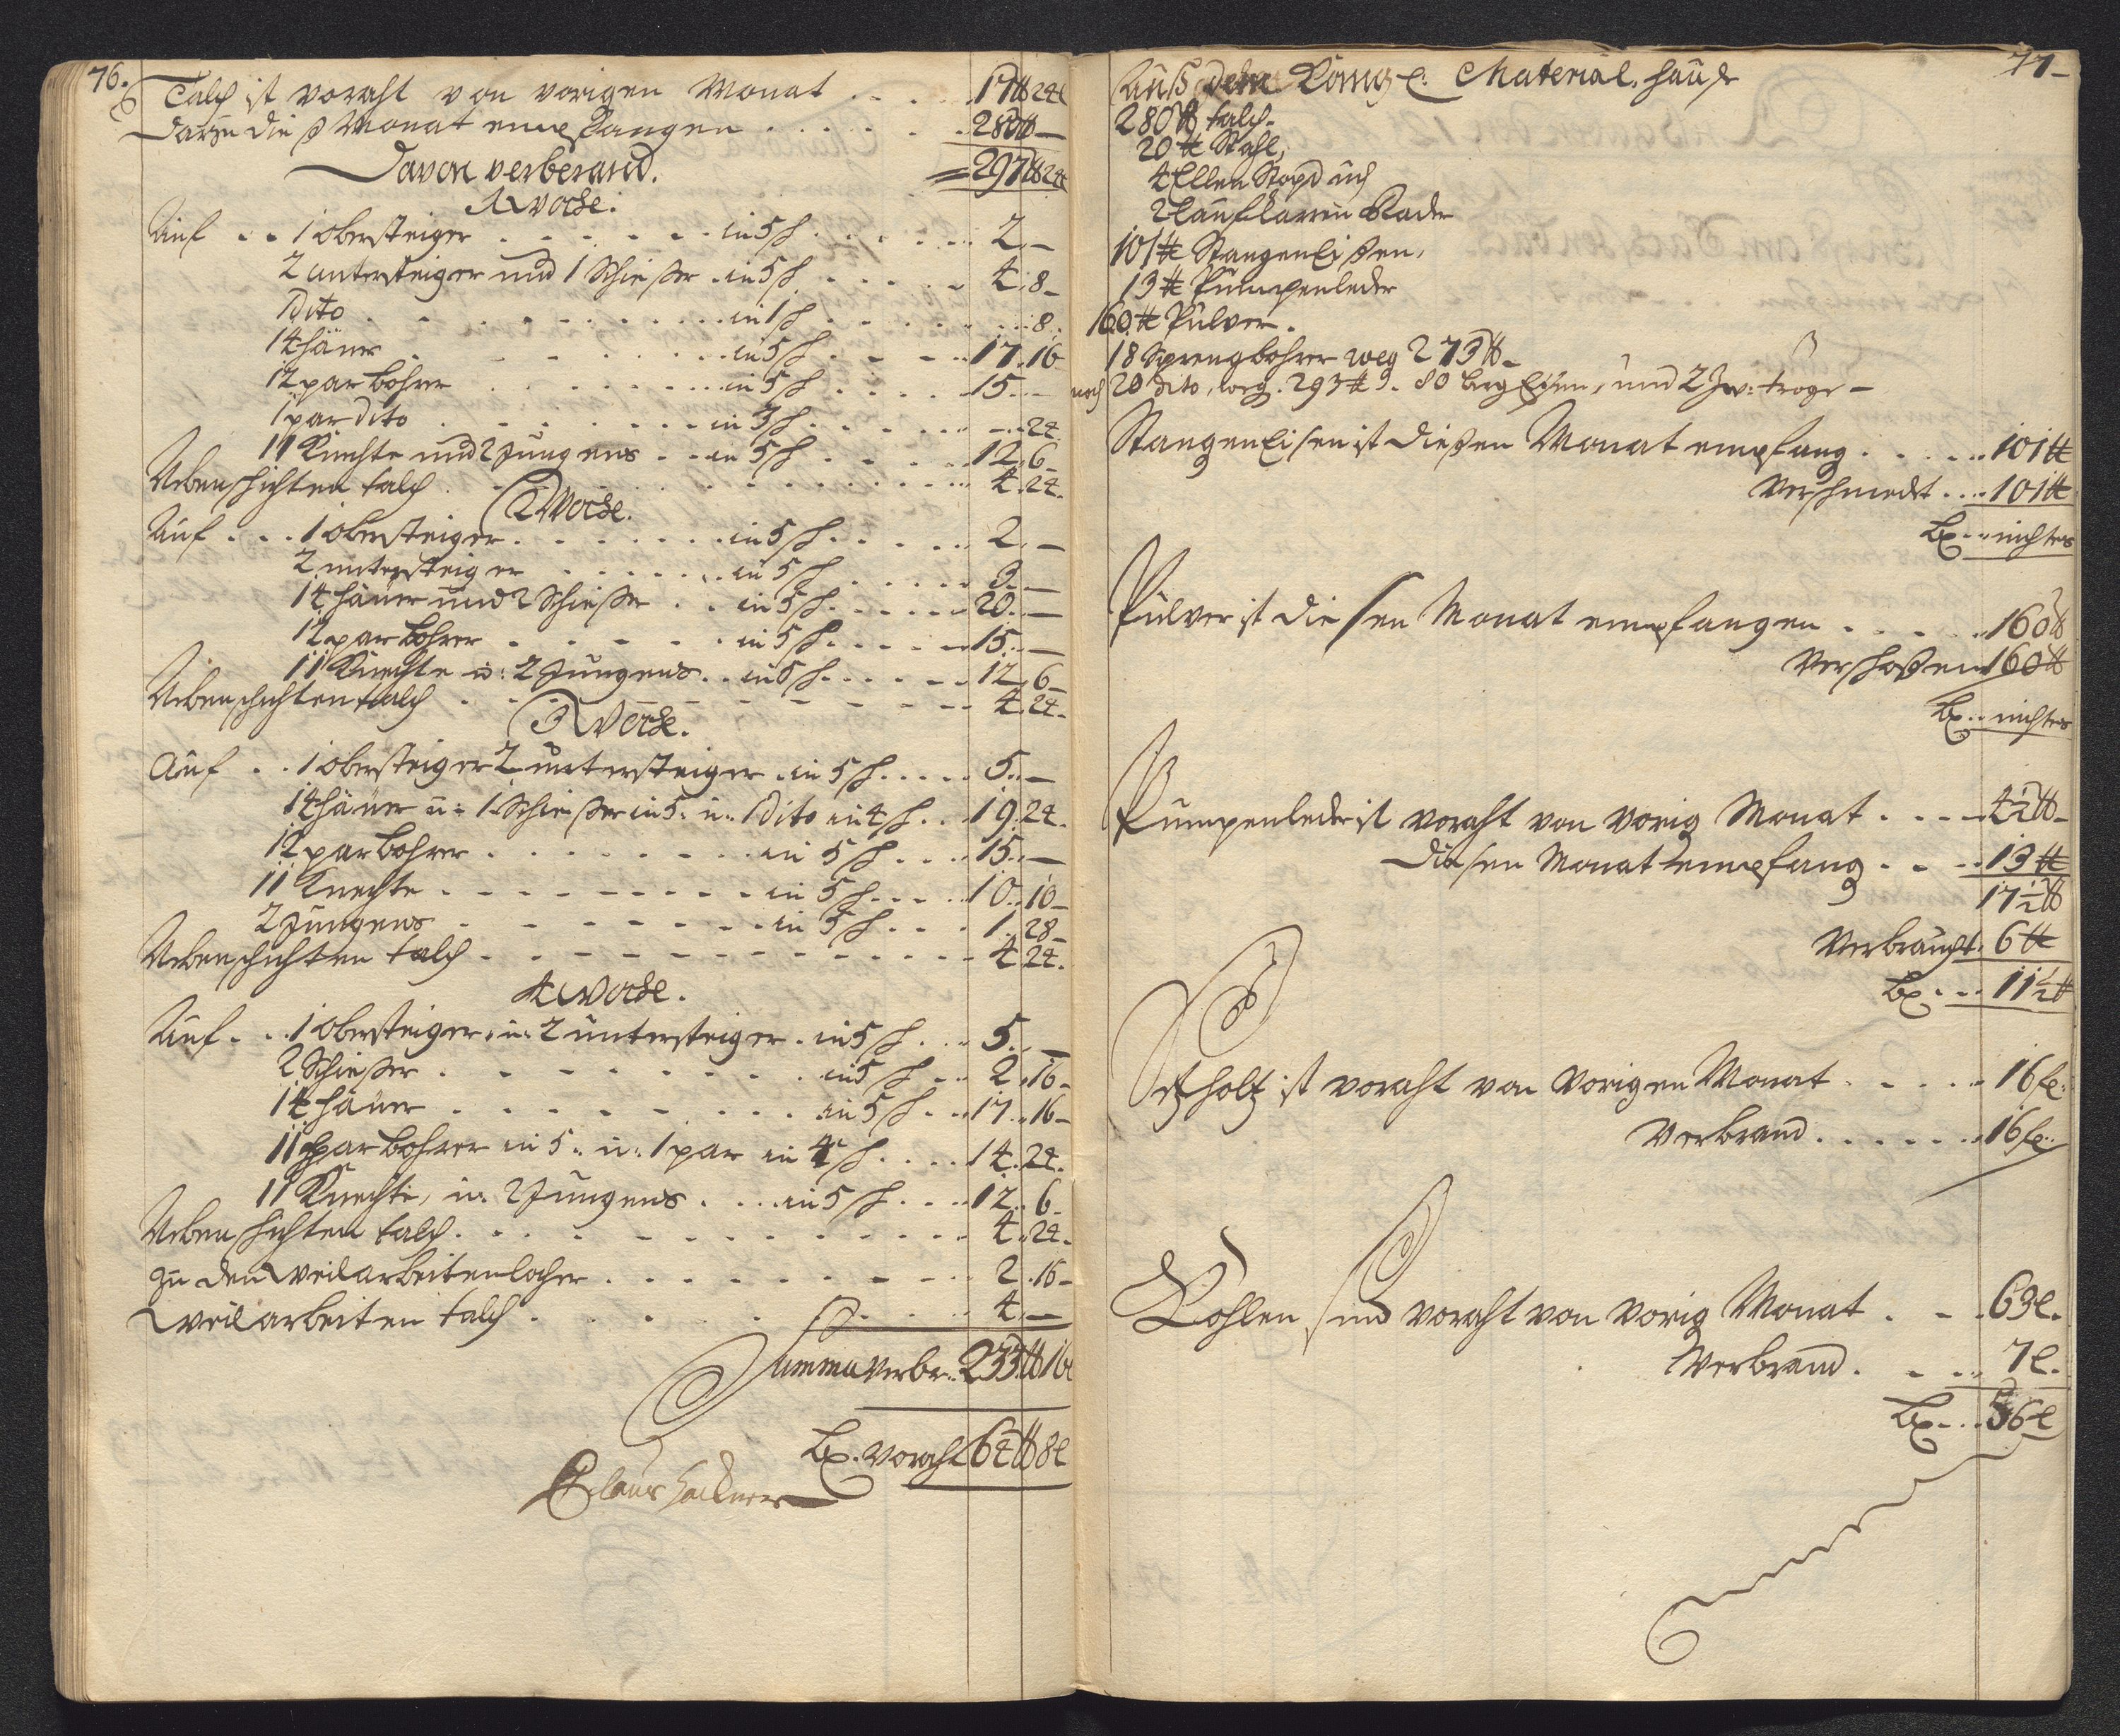 76.
Talch ist voraht von vorigen Monat . . . 17 ℔ 24 l
darzu die ß Monat empfangen . . . . . . 280 ℔ —
Davon verberand. = 297 ℔ 24
1 Woche.
Auf . . 1 obersteiger . . . . . . in 5 sch . . . . . 2 . —
2 untersteiger und 1 Schießer . in 5 sch . . . . . 4 . 8 —
1 Dito . . . . . . . . . . in 1 sch . . . . . . . 8 .
14 häuer . . . . . . in 5 sch . . . . . 17 . 16
12 par bohrer . . . . . . in 5 sch . . . . . 15 . —
1 par dito . . . . . . . in 3 sch . . . . . . — . 24
11 Knechte und 2 Jungens . . in 5 sch . . . . . 12 . 6 —
Neben schichten talch . . . . . . . . . . 4 . 24 .
2 Woche.
Auf . . . 1 obersteiger . . . . . . . in 5 sch . . . . . 2 . —
2 untersteiger . . . . . . in 5 sch . . . . . 3 . —
14 häuer und 2 Schießer . . in 5 sch . . . . . 20 . —
12 par bohrer . . . . . in 5 sch . . . . . 15 . —
11 Knechte u: 2 Jungens . . in 5 sch . . . . . 12 . 6 —
Neben schichten talch . . . . . . . . . . 4 . 24 .
3 Woche.
Auf . . 1 obersteiger 2 untersteiger . in 5 sch . . . . . 5 . —
14 häuer u: 1 Schießer in 5 . u. 1 Dito in 4 sch . . 19 . 24 .
12 par bohrer . . . . . . . . in 5 sch . . . . 15 . —
11 Knechte . . . . . . . . . in 5 sch . . . . 10 . 10 —
2 Jungens . . . . . . . in 5 sch . . . . 1 . 28 —
Neben schichten talch . . . . . . . . . . . . . 4 24 .
4 Woche.
Auf . . . 1 obersteiger . u. 2 untersteiger . in 5 sch . . . 5 . —
2 Schießer . . . . . . . . in 5 sch . . 2 . 16 —
14 häuer . . . . . . . . in 5 sch . . . 17 . 16 —
11 par bohrer in 5 . u. 1 par in 4 sch . . . . 14 . 24 .
11 Knechte, u. 2 Jungens . . . in 5 sch . . . 12 . 6 .
Neben schichten talch . . . . . . . . . . . . 4 . 24 .
zu den weilarbeiten locher . . . . . . . . . 2 . 16 —
Weilarbeiten talch . . . . . . . . . 4 . —
Summa verbr. . 233 ℔ 16
bl. voraht 64 ℔ 8 l
Claus
77 —
Auß dem König l: Material. hauß
280 ℔ talch .
20 ℔ Stahl,
4 Ellen
2 lauf karren Rader
101 ℔ Stangen Eißen,
13 ℔ Pumpenleder
160 ℔ Pulver .
18 Sprengbohrer weg 273 ℔ —
noch 20 dito, weg . 293 ℔ . 80 berg Eisen, und 2 Zw: troge —
Stangen Eisen ist dießen Monat empfang . . . . . 101 ℔
Verschmedet . . . 101 ℔
bl . . . nichtes
Pulver ist diesen Monat empfangen . . . . . 160 ℔
Verschoßen 160 ℔
bl . . . nichtes
Pumpenleder ist voraht von vorig Monat . . . . 4 1/2 ℔ —
diesen Monat empfang . . . 13 ℔
17 1/2 ℔
Verbraucht . 6 ℔
bl . . . 11 1/2 ℔
Setzholtz ist voraht von vorigen Monat . . . . . 16 fa:
Verbrand . . . . . . . 16 fa:
Kohlen sind voraht von vorig Monat . . . 63 l .
Verbrand . . . . 7 l .
bl . . . 56 l